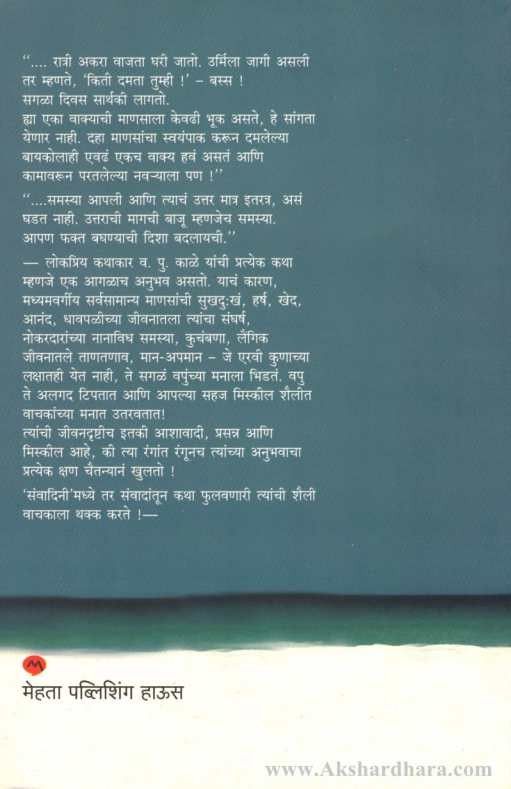 “.... रात्री अकरा वाजता घरी जातो. उर्मिला जागी असली
तर म्हणते, ‘किती दमता तुम्ही !’ – बस्स !
सगळा दिवस सार्थकी लागतो.
ह्या एका वाक्याची माणसाला केवढी भूक असते, हे सांगता
येणार नाही. दहा माणसांचा स्वयंपाक करून दमलेल्या
बायकोलाही एवढं एकच वाक्य हवं असतं आणि
कामावरून परतलेल्या नवऱ्याला पण !”
“....समस्या आपली आणि त्याचं उत्तर मात्र इतरत्र, असं
घडत नाही. उत्तराची मागची बाजू म्हणजेच समस्या.
आपण फक्त बघण्याची दिशा बदलायची.”
— लोकप्रिय कथाकार व. पु. काळे यांची प्रत्येक कथा
म्हणजे एक आगळाच अनुभव असतो. याचं कारण,
मध्यमवर्गीय सर्वसामान्य माणसांची सुखदुःखं, हर्ष, खेद,
आनंद, धावपळीच्या जीवनातला त्यांचा संघर्ष,
नोकरदारांच्या नानाविध समस्या, कुचंबणा, लैंगिक
जीवनातले ताणतणाव, मान-अपमान – जे एरवी कुणाच्या
लक्षातही येत नाही, ते सगळं वपुंच्या मनाला भिडतं. वपु
ते अलगद टिपतात आणि आपल्या सहज मिस्कील शैलीत
वाचकांच्या मनात उतरवतात!
त्यांची जीवनदृष्टीच इतकी आशावादी, प्रसन्न आणि
मिस्कील आहे, की त्या रंगांत रंगूनच त्यांच्या अनुभवाचा
प्रत्येक क्षण चैतन्यानं खुलतो !
‘संवादिनी’मध्ये तर संवादांतून कथा फुलवणारी त्यांची शैली
वाचकाला थक्क करते !—
मेहता पब्लिशिंग हाऊस
www.Akshardhara.com